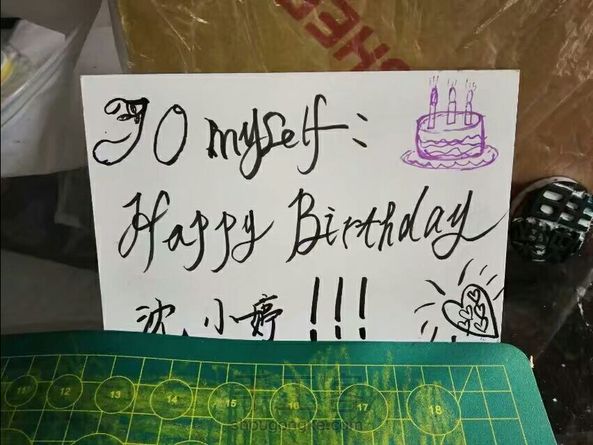 To myself:
Happy Birthday
沈小婷!!!
11 12 13 14 15 16 17 18
shougongke.com